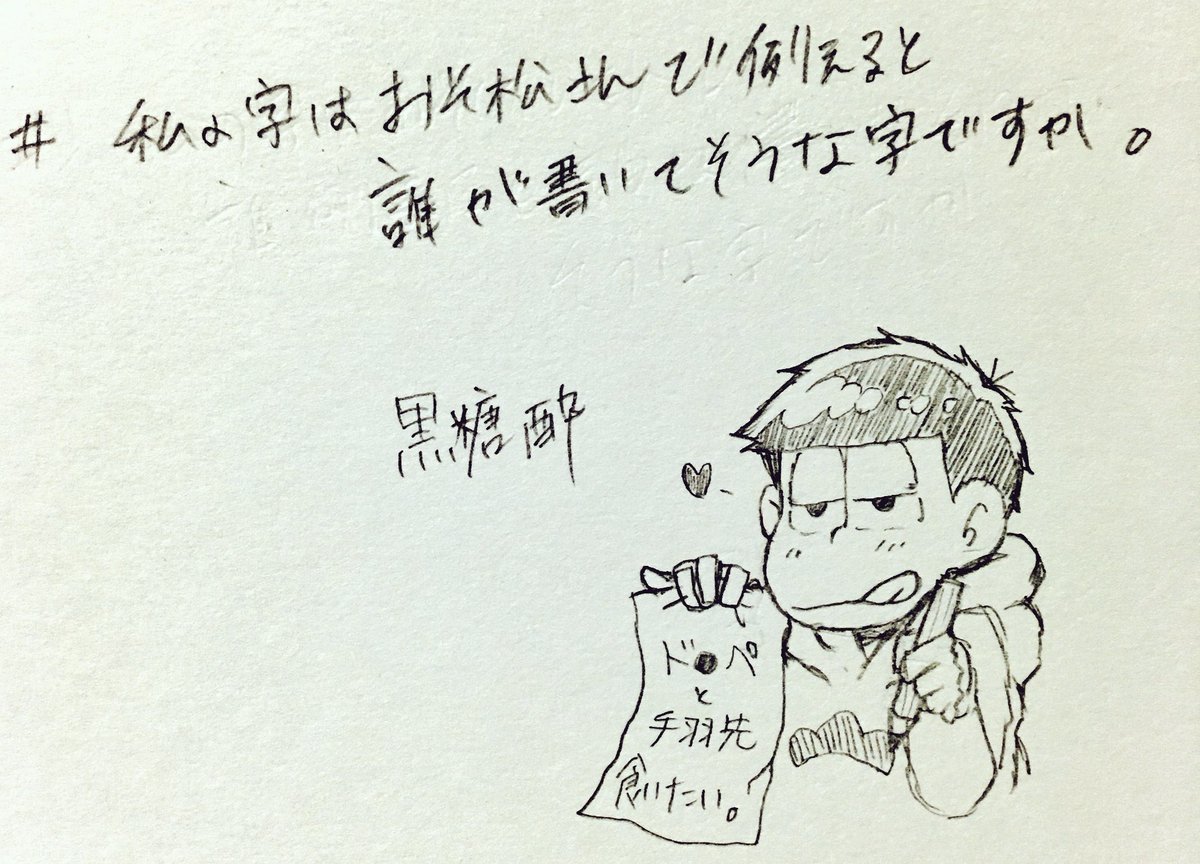 # 私の字はおそ松さんで例えると
誰が書いてそうな字ですか。
黒糖酢
ド●ペ
と
手羽先
食いたい。